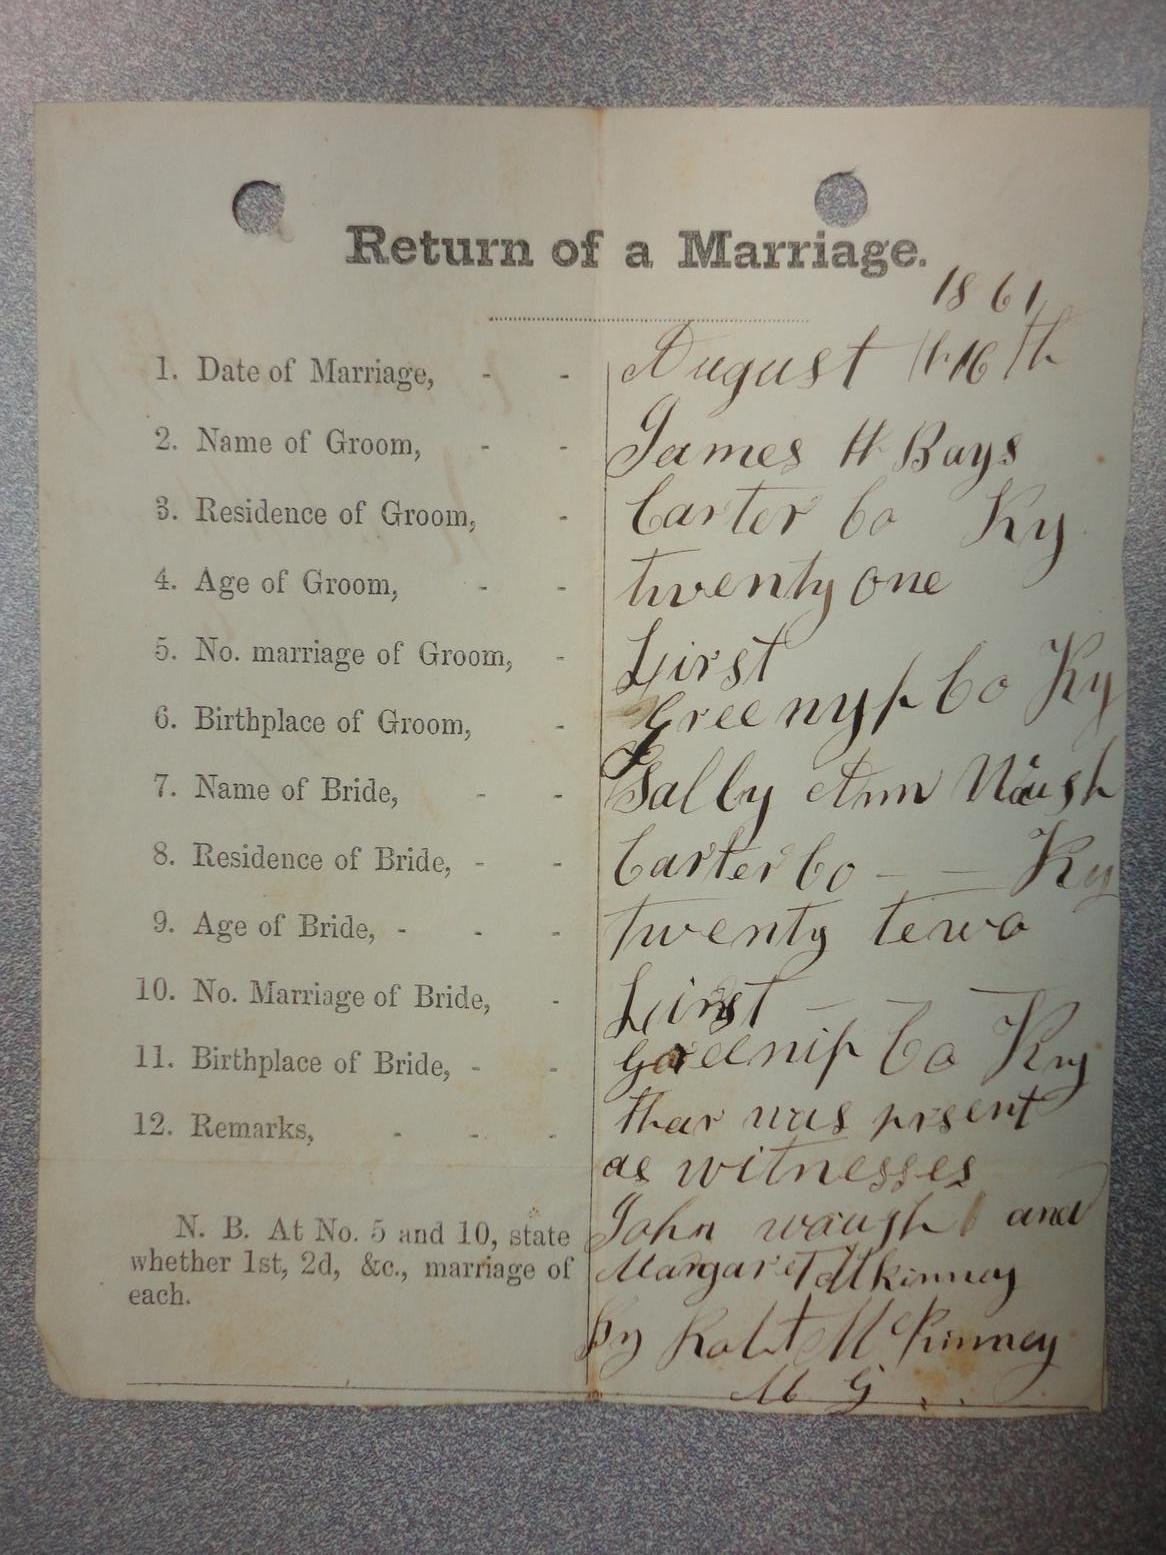 Return of a Marriage.
1861
1. Date of Marriage, - - August 16th
2. Name of Groom, - - James H Bays
3. Residence of Groom, - Carter Co Ky
4. Age of Groom, - - twenty one
5. No. marriage of Groom, - First
6. Birthplace of Groom, - Greenyp Co Ky
7. Name of Bride, - - Sally Ann Waugh
8. Residence of Bride, - - Carter Co - - Ky
9. Age of Bride, - - - twenty tewo
10. No. Marriage of Bride, - First -
11. Birthplace of Bride, - - Greenip Co Ky
12. Remarks, - - - thar was prsent
as witnesses
N. B. At No. 5 and 10, state John waugh and
whether 1st, 2d, &c., marriage of Margaret Mkinney
each.
By Robt McKinney
M G